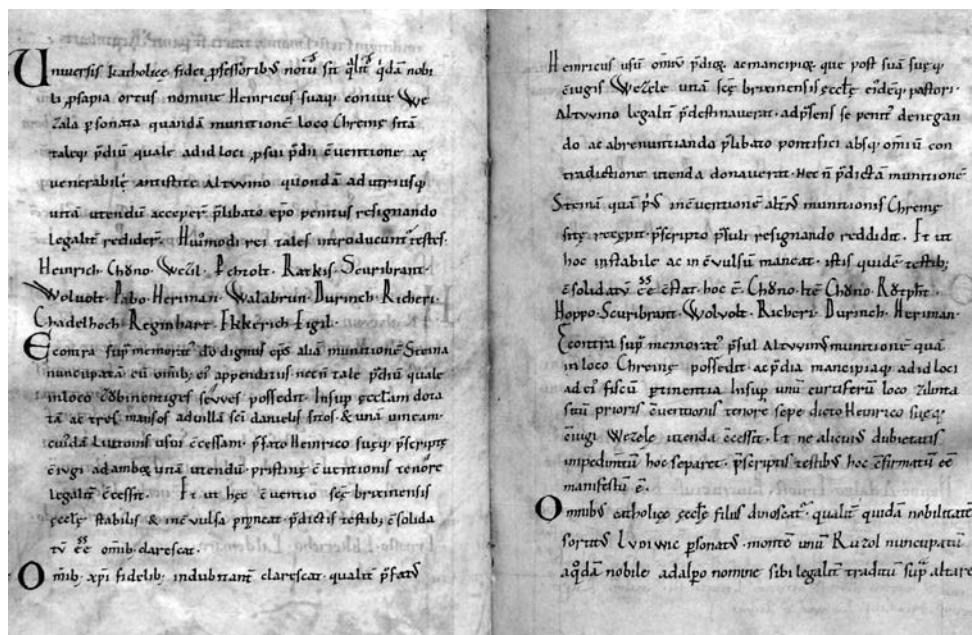 Universis katholicę fidei ꝓfessoribꝰ notū sit qͣlit̄ qͥdā nobi
li ꝓsapia ortus nomine Heinricus suaqꝫ coniux We
zala ꝑsonata quandā munitionē loco Chreine sitā
taleqꝫ p̄diū quale adid loci ꝓsui p̄dii c̄uentione ac
uenerabilę antistite Altwino quondā ad utriusqꝫ
uitā utendū acceper̄ p̄libato ep̄o penitus resignando
legalit̄ redider̄. Huiꝰmodi rei tales introducunt᷑ testes.
Heinrich. Chǒno. Wezil. Pehtolt. Ratkis. Scuribrant.
Wolvolt. Pabo. Heriman. Walabrun. Durinch. Richeri.
Chadelhoch. Reginhart. Ekkerich. Eigil.
Econtra sup̄memorat᷑ dō dignus ep̄s aliā munitionē Steina
nuncupatā cū omībꝫ eiꝰ appendiciis necn̄ tale p̄diū quale
inloco possedit. Insup̄ ęccłam dota
tā ac tres mansos aduillā sc̄i danielis sitos. & unā uineam
cuidā Liutonis usui c̄cessam. p̄fato Heinrico suęqꝫ p̄scriptę
c̄iugi adamboꝝ uitā utendū. pristinę c̄uentionis tenore
legalit̄ c̄cessit. Et ut hęc c̄uentio sc̄ę brixinensis
ęccłę stabilis & inc̄uulsa ꝑmaneat. p̄dictis testibꝫ c̄solida
tū ēē omībꝫ clarescat.
Omībꝫ xp̄i fidelibꝫ indubitant᷑ clarescat. qualit̄ p̄fatꝰ
Heinricus usū omniū p̄dioꝝ ac mancipioꝝ que post suā suęqꝫ
c̄iugis Wezele uitā sc̄ę brixinensis ęccłę eidēqꝫ pastori.
Altwino legalit̄ p̄destinauerat. adp̄sens se penit᷑ denegan
do ac abrenuntiando p̄libato pontifici absqꝫ omniū con
tradictione utenda donauerat. Hec n̄ p̄dictā munitionē
Steinā quā p̄ꝰ inc̄uentione alterꝰ munitionis Chreine
sitę recepit. p̄scripto p̄suli resignando reddidit. Et ut
hoc instabile ac inc̄uulsū maneat. istis quidē testibꝫ
c̄solidatū ēē c̄stat. hoc ē. Chǒno. Itē Chǒno. Rǒtpht.
Hoppo. Scuribrant. Wolvolt. Richeri. Durinch. Heriman.
Econtra sup̄ memorat᷑ p̄sul Altwinꝰ munitionē quā
in loco Chreine possedit. ac p̄dia mancipiaqꝫ adid loci
ad eiꝰ fiscū ꝑtinentia. Insup̄ unū curtiferū loco Zilinta
sitū prioris c̄uentionis tenore sepe dicto Heinrico suęqꝫ
c̄iugi Wezele utenda c̄cessit. Et ne alicuiꝰ dubietatis
impedimtū hoc separet. p̄scriptis testibꝰ hoc c̄firmatū ēē
manifestū ē.
Omnibꝰ catholicę ęccłę filiis dinoscat᷑. qualit̄ quidā nobilitatē
sortitꝰ Lvdwic ꝑsonatꝰ. montē unū Ruzol nuncupatū
aqͦdā nobile adalpero nomine sibi legalit̄ traditū sup̄ altare